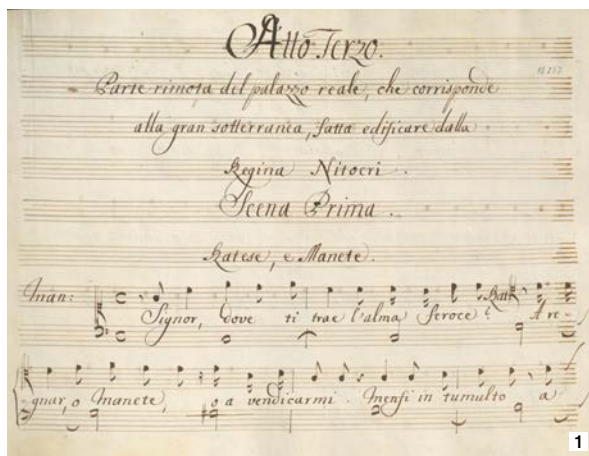 Atto Terzo.
Parte rimota del palazzo reale, che corrisponde
alla gran sotterranea, fatta edificare dalla
Regina Nitocri.
Scena Prima.
Ratese, e Manete.
Man: Rat:
Signor, dove ti trae l'alma feroce? A re-
gnar, o Manete, o a vendicarmi. Menfi in tumulto a
1